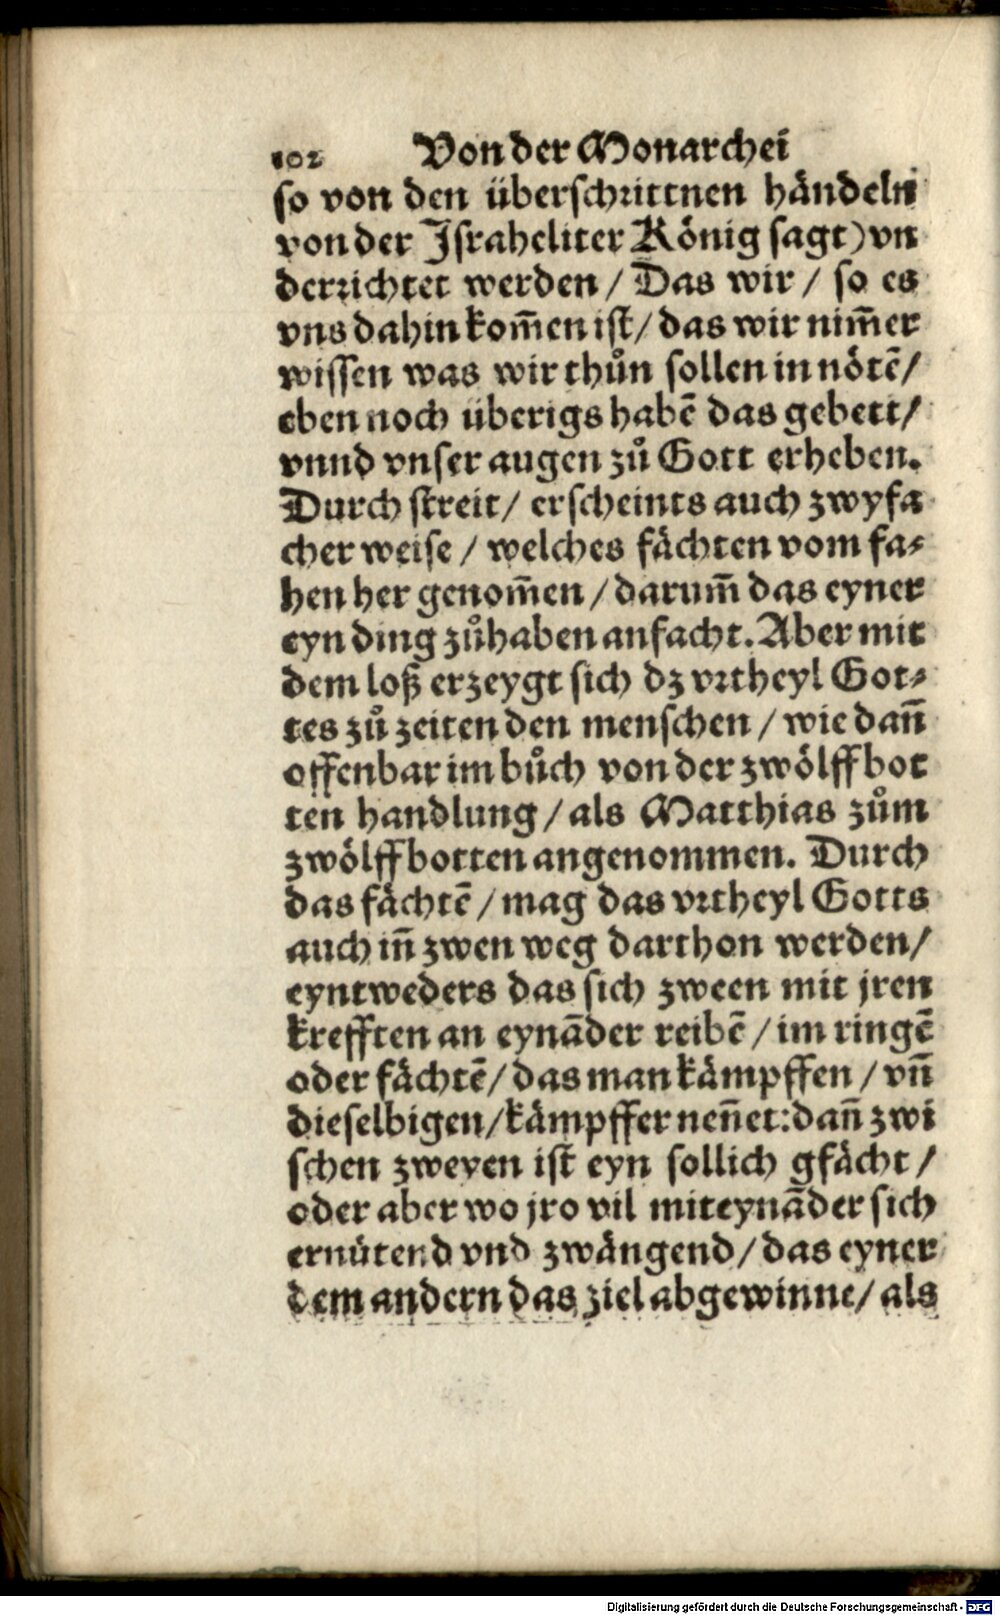 102 Von der Monarchei
so von den überschrittnen händeln
von der Israheliter König sagt) vn
derrichtet werden / Das wir / so es
vns dahin kom̄en ist / das wir nim̄er
wissen was wir thůn sollen in nötē /
eben noch überigs habē das gebett /
vnnd vnser augen zů Gott erheben.
Durch streit / erscheints auch zwyfa
cher weise / welches fächten vom fa⸗
hen her genom̄en / darum̄ das eyner
eyn ding zůhaben anfacht. Aber mit
dem loß erzeygt sich dz vrtheyl Got⸗
tes zů zeiten den menschen / wie dañ
offenbar im bůch von der zwölffbot
ten handlung / als Matthias zům
zwölffbotten angenommen. Durch
das fächtē / mag das vrtheyl Gotts
auch iñ zwen weg darthon werden /
eyntweders das sich zween mit jren
krefften an eynāder reibē / im ringē
oder fächtē / das man kämpffen / vñ
dieselbigen / kämpffer neñet: dañ zwi
schen zweyen ist eyn sollich gfächt /
oder aber wo jro vil mit eynāder sich
ernütend vnd zwängend / das eyner
dem andern das ziel abgewinne / als
Digitalisierung gefördert durch die Deutsche Forschungsgemeinschaft - DFG